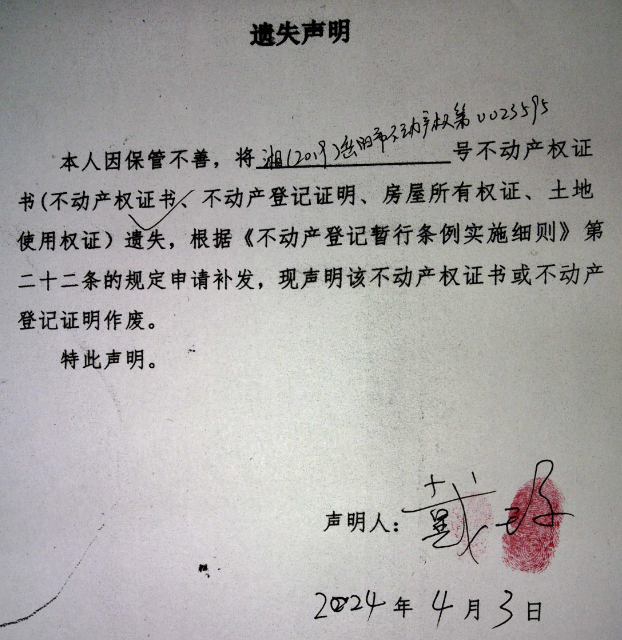 遗失声明
本人因保管不善，将湘(2019)岳阳市不动产权第0023595号不动产权证
书(不动产权证书、不动产登记证明、房屋所有权证、土地
使用权证）遗失，根据《不动产登记暂行条例实施细则》第
二十二条的规定申请补发，现声明该不动产权证书或不动产
登记证明作废。
特此声明。
声明人：戴
2024年4月3日